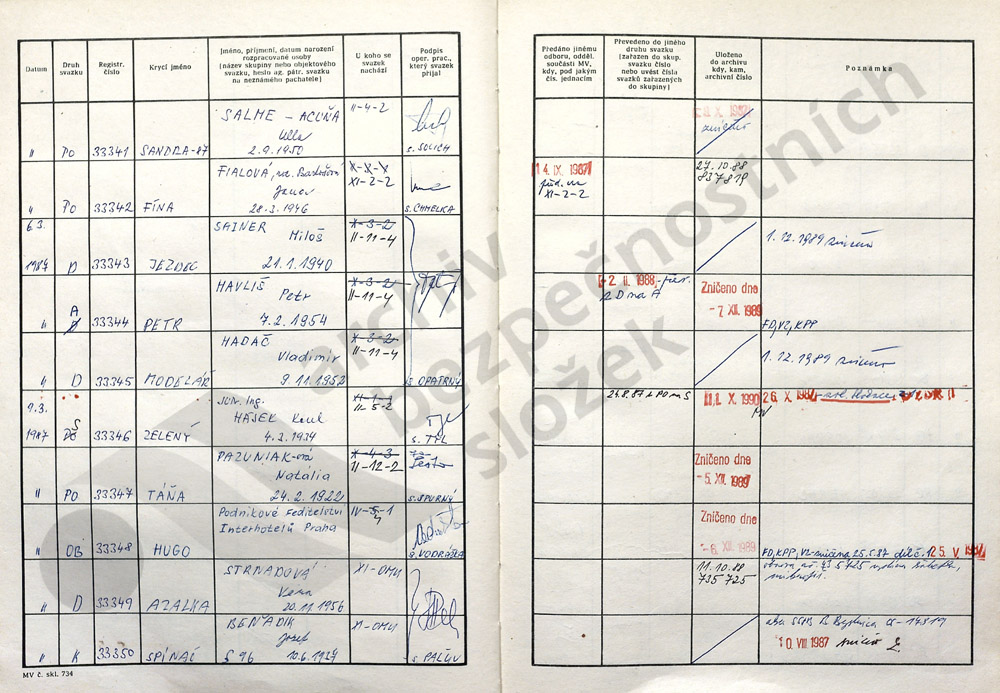 Datum
Druh svazku
Registr. číslo
Krycí jméno
Jméno, příjmení, datum narození
rozpracované osoby
(název skupiny nebo objektového
svazku, heslo ag. pátr. svazku
na neznámého pachatele)
U koho se
svazek
nachází
Podpis
oper. prac.,
který svazek
přijal
Předáno jinému
odboru, odděl.
součásti MV,
kdy, pod jakým
čís. jednacím
Převedeno do jiného
druhu svazku
(zařazen do skup.
svazku číslo
nebo uvést čísla
svazků zařazených
do skupiny)
Uloženo
do archivu
kdy, kam,
archivní číslo
Poznámka
SALME - ACUŇA II-4-2
Ulla
" PO 33341 SANDRA-87 2.9.1950 s. SOLICH
X. 1987
zničeno
FIALOVÁ, roz. X-X-X
XI-2-2
" PO 33342 FÍNA 28.3.1946 s. CHMELKA
14. IX. 1987
XI-2-2
27.10.88
837819
6.3. SAINER X-3-2
Miloš II-11-4
1987 D 33343 JEZDEC 21.1.1940
1.12.1989 zničeno
HAVLIŠ X-3-2
A Petr II-11-4
" D 33344 PETR 7.2.1954
- 2. II. 1988
z D na A
Zničeno dne
- 7. XII. 1989
FD, VZ, KPP
HADAČ X-3-2
Vladimír II-11-4
" D 33345 MODELÁŘ 9.11.1952 s. OPATRNÝ
1.12.1989 zničeno
9.3. JUDr. Ing. XI-1-1
S HÁJEK Karel II-5-2
1987 33346 ZELENÝ 4.2.1934 s. TYL
24.8.87 z PO na S
X. 1990
26. X. 198
PAZUNIAK-ová X-4-3
Natália II-12-2
" PO 33347 TÁŇA 24.2.1922 s. SPURNÝ
Zničeno dne
- 5. XII. 1989
Podnikové ředitelství IV-5-1
Interhotelů Praha 4
" OB 33348 HUGO s. VODRÁŽKA
Zničeno dne
- 6. XII. 1989
FD, KPP, VZ-zničena 25.5.87 díl č. 1 25. V. 198
STRNADOVÁ XI-OMU
Věra
" D 33349 AZALKA 20.11.1956
11.10.88
735725
BEŇADIK XI-OMU
Jozef
" K 33350 SPÍNAČ § 96 10.6.1947 s. PALŮV
B. Bystrica
10. VIII 1987 zničen
MV č. skl. 734
archiv
bezpečnostních
složek